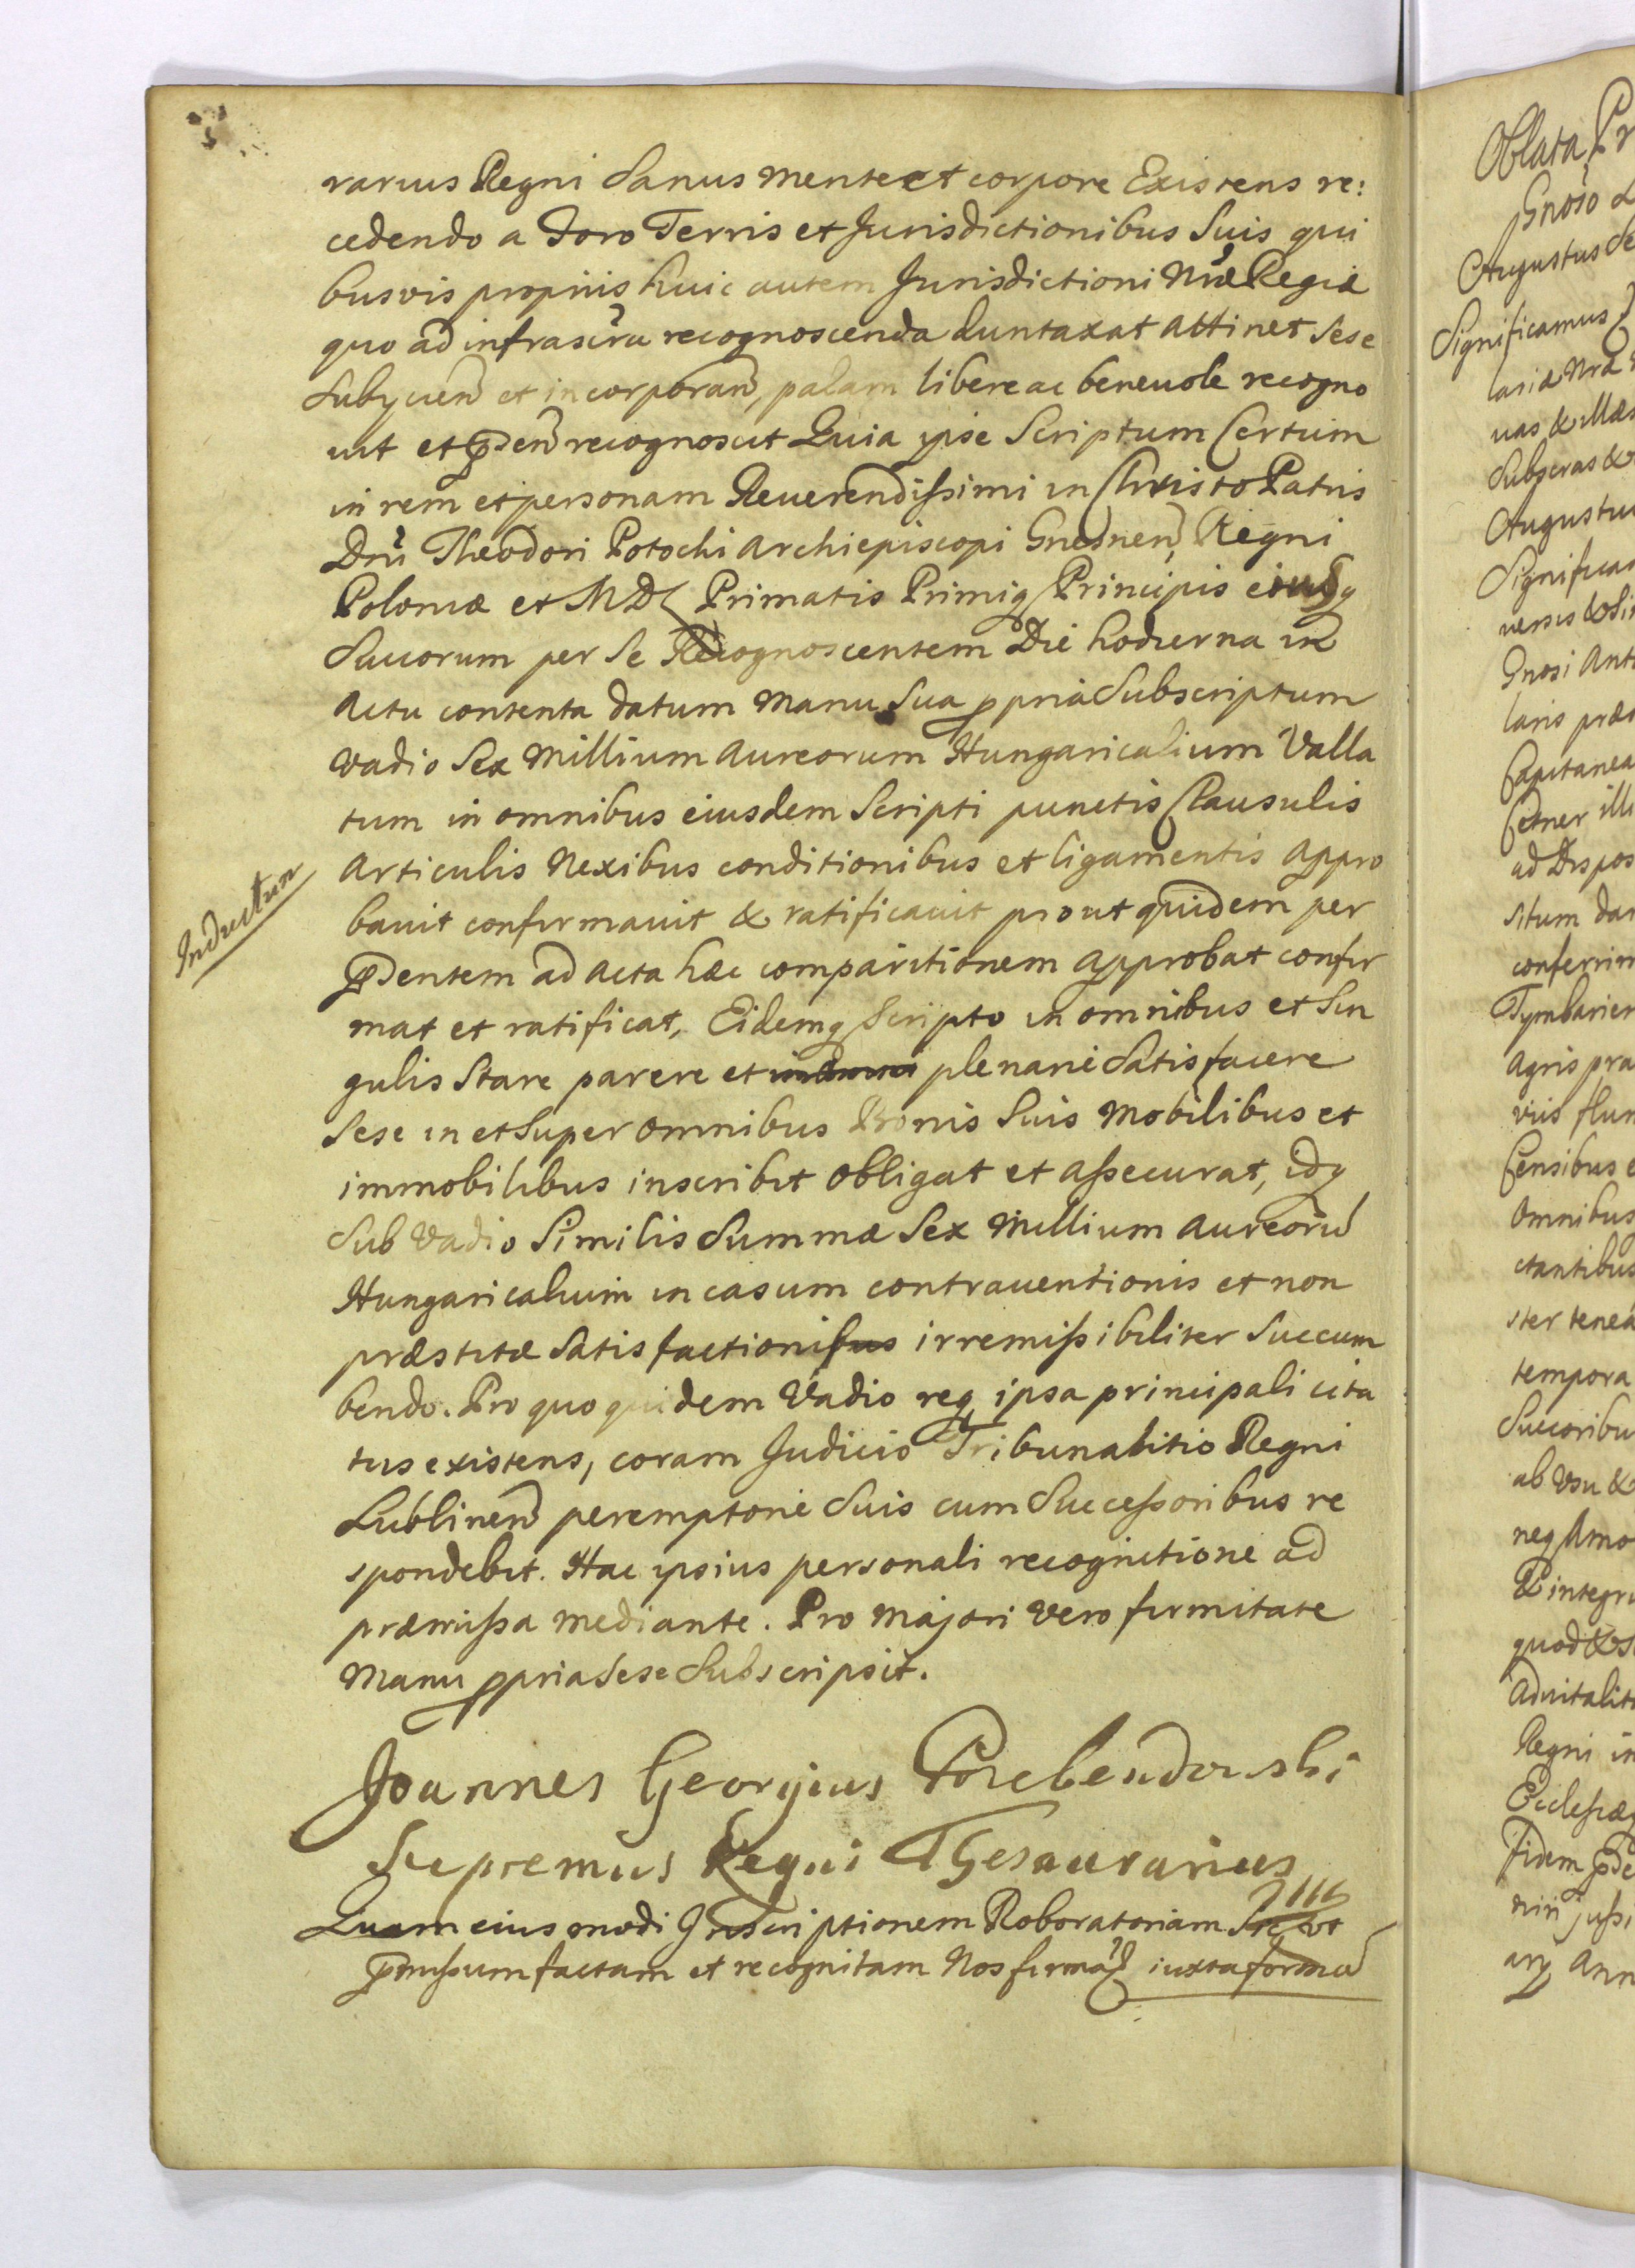 rarius Regni Sanus mente et corpore Existens re:
cedendo a Foro Terris et Jurisdictionibus Suis qui
busvis propriis huic autem Jurisdictioni Nrae Regiae
quo ad infrascra recognoscenda duntaxat attinet Sese
Subijcien et incorporan, palam libere ac beneuole recogno
uit et pden recognoscit Quia ipse Scriptum Certum
in rem et personam Reuerendissimi in Christo Patris
Dni Theodori Potocki Archiepiscopi Gnesnen, Regni
Poloniae et MDL Primatis Primiq Principis eiusq
Succorum per Se Recognoscentem Die hodierna in
Actu contenta datum Manu Sua ppria Subscriptum
vadio Sex Millium Aureorum Hungaricalium Valla
tum in omnibus eiusdem Scripti punctis Clausulis
Articulis Nexibus conditionibus et ligamentis Appro
bauit confirmauit & ratificauit prout quidem per
pdentem ad Acta haec comparitionem approbat confir
mat et ratificat, Eidemq Scripto in omnibus et Sin
gulis Stare parere et plenarie Satisfacere
Inductum
Sese in et Super omnibus Bonis Suis Mobilibus et
immobilibus inscribit obligat et assecurat, idq
Sub Vadio Similis Summae Sex Millium Aureoru
Hungaricalium in casum contrauentionis et non
praestitae Satisfactionis irremissibiliter Succum
bendo. Pro quo quidem Vadio req ipsa principali cita
tus existens, coram Judicio Tribunalitio Regni
Lublinen peremptorie Suis cum Successoribus re
spondebit. Hac ipsius personali recognitione ad
praemissa mediante. Pro Majori vero firmitate
Manu ppria Sese Subscripsit.
Joannes Georgius Przebendowski
Supremus Regni Thesaurarius
Quam eiusmodi Inscriptionem Roboratoriam
pmissum factam et recognitam Nos iuxta forma
Oblata
Augustus
Significamus
uas & illas
Augustu
Gnosi Ant
laris prae
Capitanea
ad Dispos
situm dar
conferrim
Tymbarien
Agris pra
viis flum
Censibus e
Omnibus
ctantibus
ster tenea
tempora
Succoribu
ab Usu &
neq Amo
& integr
quod &
Aduitalit
Regni in
Fidem
Ann